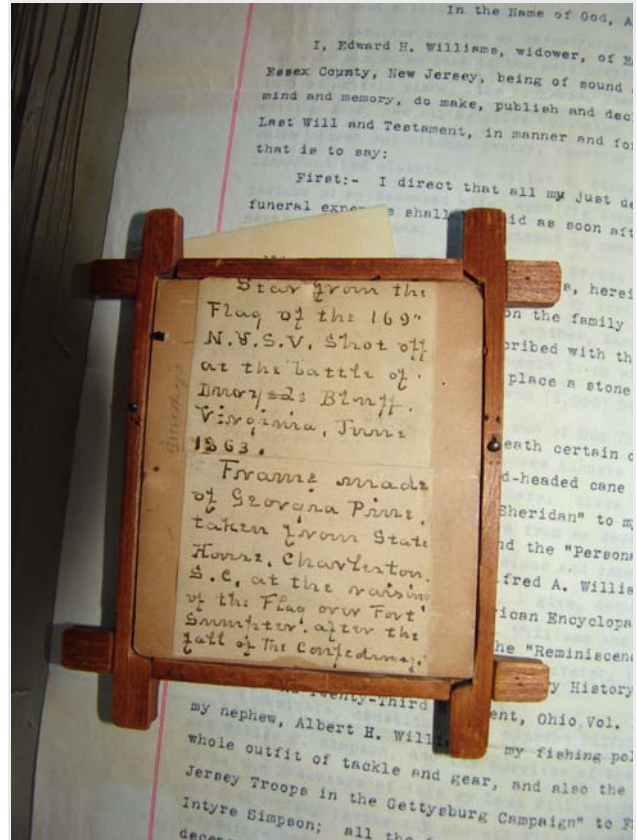 In the Name of God, A
I, Edward H. Williams, widower, of E
Essex County, New Jersey, being of sound
mind and memory, do make, publish and dec
Last Will and Testament, in manner and fo
that is to say:
First:- I direct that all my just de
funeral expe s shall id as soon aft
s, herei
on the family
ribed with th
place a stone
eath certain
d-headed cane
Sheridan" to m
d the "Person
fred A. Willi
ican Encyclopa
he "Reminiscen
y History
Twenty-Third ent, Ohio Vol.
my nephew, Albert H. Willi my fishing pol
whole outfit of tackle and gear, and also the
Jersey Troops in the Gettysburg Campaign" to F
Intyre Simpson; all the
Star from the
Flag of the 169"
N.Y.S.V. Shot off
at the battle of
Bluff.
Virginia, June
1863.
Frame made
of Georgia Pine,
taken from State
House, Charleston.
S.C, at the raising
of the Flag over Fort
Sumpter. after the
fall of the